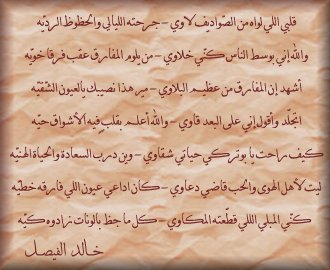 قلبي اللي لواه من الصواديف لاوي - جرحته الليالي والحظوظ الرديّه
والله إني بوسط الناس كنّي خلاوي - من يلوم المفارق عقب فرقا خويّه
أشهد إن المفارق من عظيم البلاوي - مير هذا نصيبك يالعيون الشقيّه
اتجلّد وأقول إني على البعد قاوي - والله أعلم بقلبٍ فيه الأشواق حيّه
كيف راحت يا بوتركي حياتي شقاوي - وين درب السعادة والحياة الهنيّه
ليت لأهل الهوى والحب قاضي دعاوي - كان اداعي عيون اللي فارقه خطيّه
كنّي المبلي اللي قطّعته المكاوي - كل ما جظ بالونات زادوه كيّه
خالد الفيصل